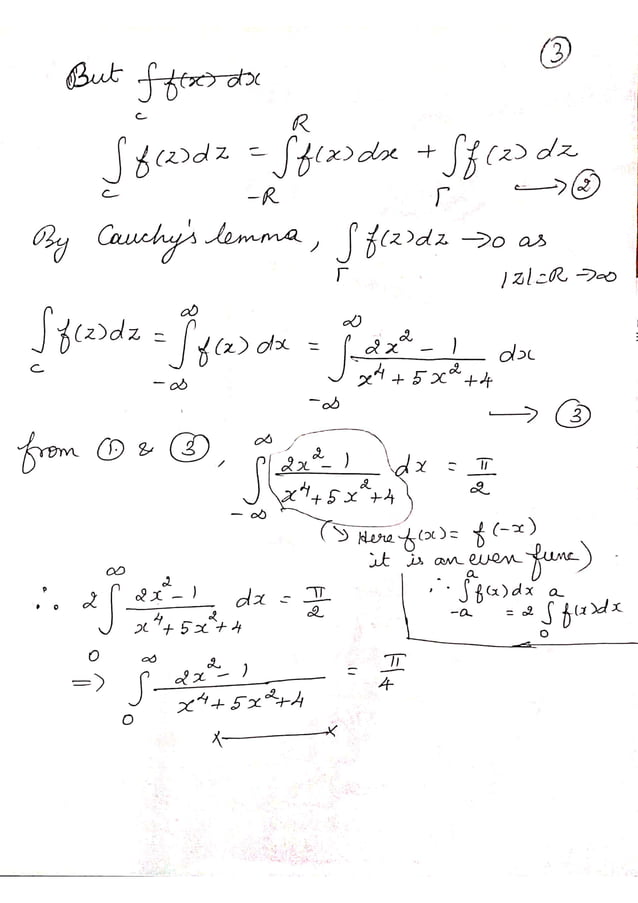 ③
But ∫_c f(x) dx
∫_c f(z)dz = ∫_{-R}^{R} f(x)dx + ∫_Γ f(z) dz ⟶ ②
By Cauchy's lemma, ∫_Γ f(z)dz → 0 as
|z|=R → ∞
∫_c f(z)dz = ∫_{-∞}^{∞} f(x) dx = ∫_{-∞}^{∞} (2x² - 1)/(x⁴ + 5x² + 4) dx
⟶ ③
from ① & ③, ∫_{-∞}^{∞} (2x² - 1)/(x⁴ + 5x² + 4) dx = π/2
(→ Here f(x) = f(-x)
it is an even func)
∴ 2∫_0^∞ (2x² - 1)/(x⁴ + 5x² + 4) dx = π/2
∴ ∫_{-a}^{a} f(x)dx = 2 ∫_0^a f(x)dx
=> ∫_0^∞ (2x² - 1)/(x⁴ + 5x² + 4) = π/4
x———x